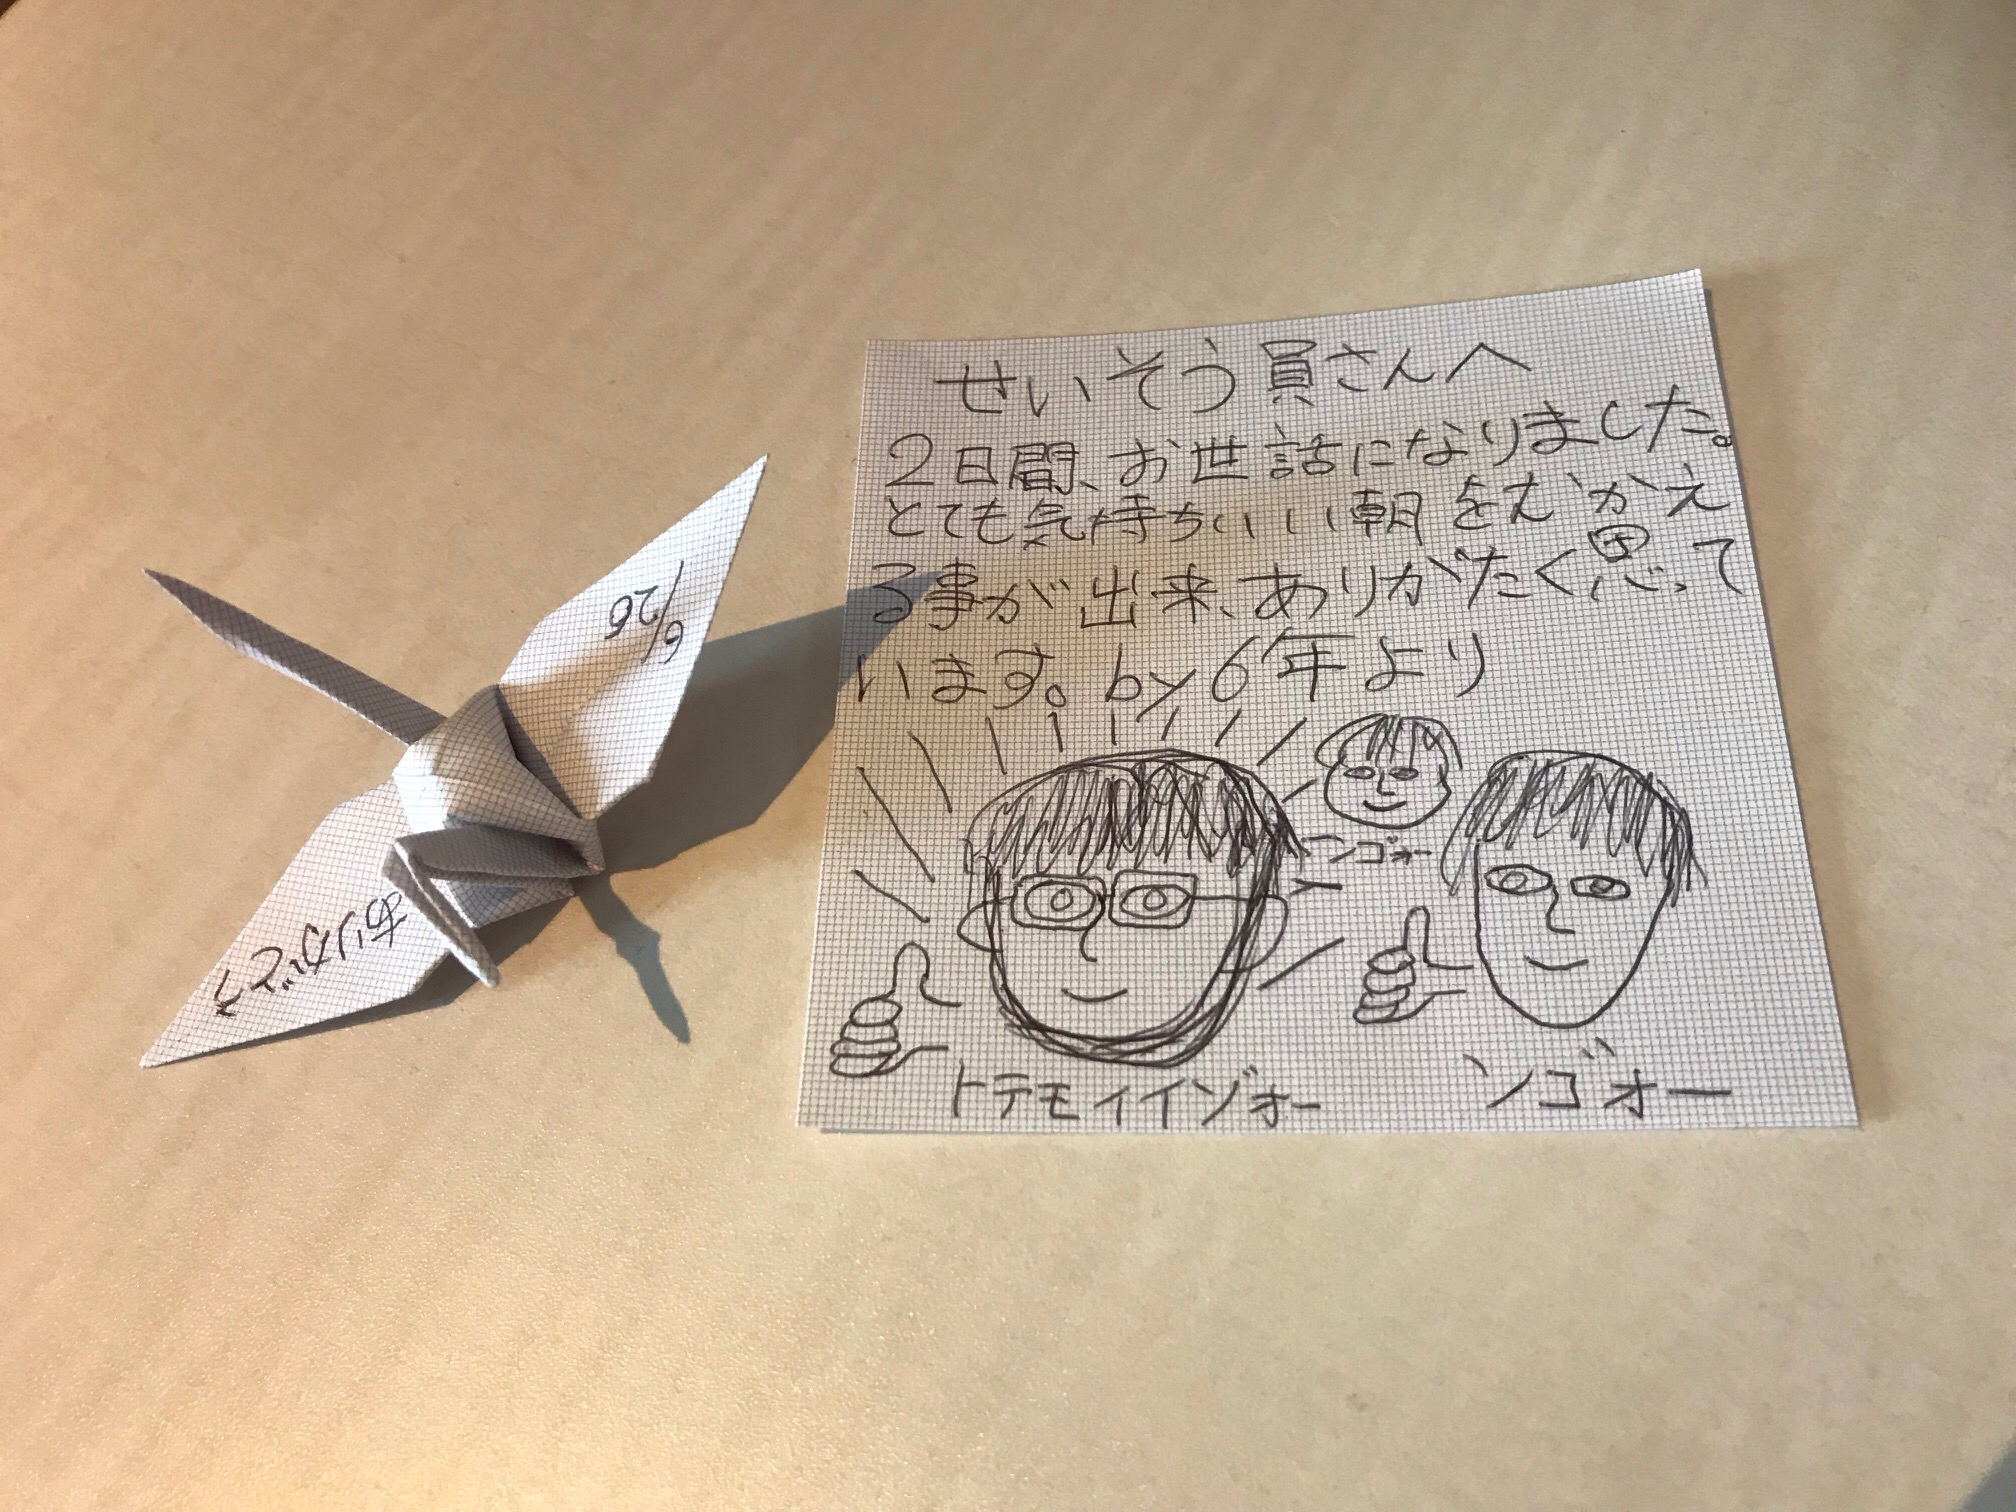 せいそう員さんへ
2日間、お世話になりました。
とても気持ちいい朝をむかえ
る事が出来、ありがたく思って
います。by6年より
ンゴォー
トテモイイゾォー
ンゴォー
6/26
ありがとう